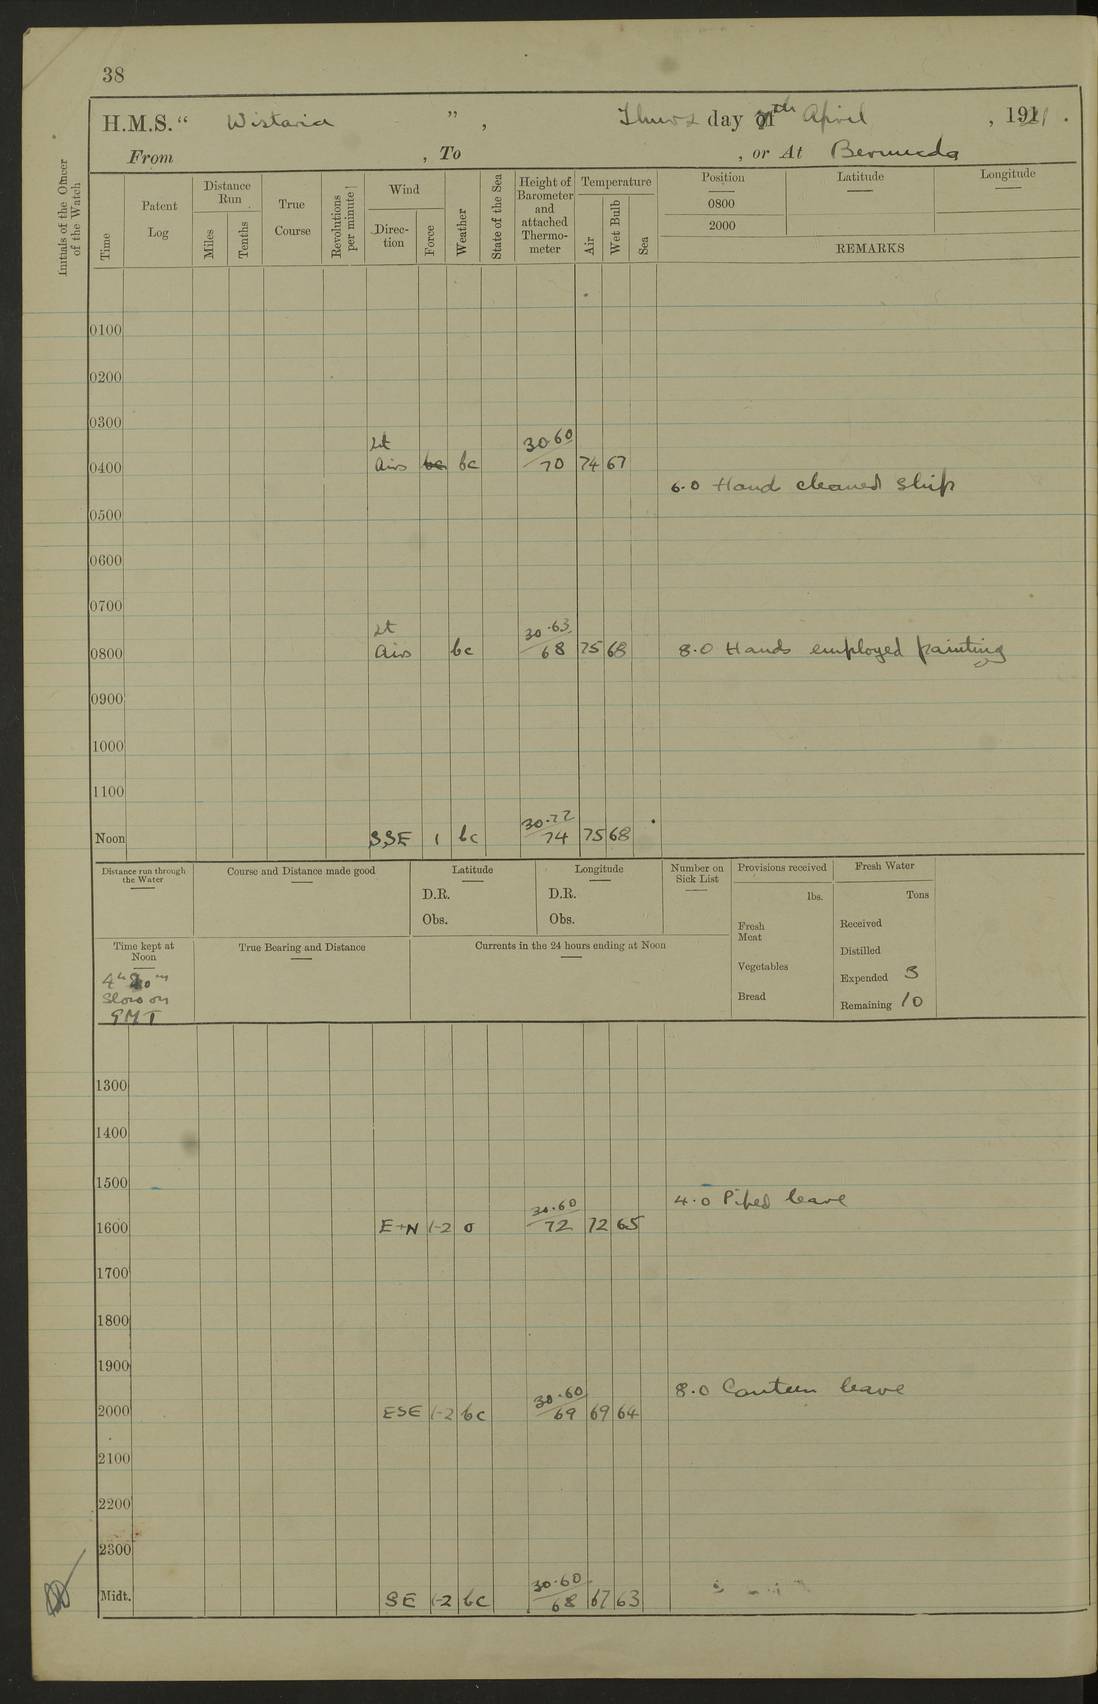 38
H.M.S. “ Wistaria ” , Thursday 7th April , 1921 .
From , To , or At Bermuda
Initials of the Officer of the Watch
Time
Patent Log
Distance Run
Miles
Tenths
True Course
Revolutions per minute
Wind
Direc-tion
Force
Weather
State of the Sea
Height of Barometer and attached Thermo-meter
Temperature
Air
Wet Bulb
Sea
Position
Latitude
Longitude
0800
2000
REMARKS
0100
0200
0300
Lt 30.60
0400 Airs bc bc 70 74 67
6.0 Hand cleaned ship
0500
0600
0700
Lt 30.63
0800 Airs bc 68 75 68 8.0 Hands employed painting
0900
1000
1100
30.72
Noon SSE 1 bc 74 75 68
Distance run through the Water
Course and Distance made good
Latitude
D.R.
Obs.
Longitude
D.R.
Obs.
Number on Sick List
Provisions received
lbs.
Fresh Meat
Vegetables
Bread
Fresh Water
Tons
Received
Distilled
Expended 3
Remaining 10
Time kept at Noon
4h 20m
Slow on
GMT
True Bearing and Distance
Currents in the 24 hours ending at Noon
1300
1400
1500
4.0 Piped leave
30.60
1600 E+N 1-2 o 72 72 65
1700
1800
1900
8.0 Canteen leave
30.60
2000 ESE 1-2 bc 69 69 64
2100
2200
2300
30.60
Midt. SE 1-2 bc 68 67 63